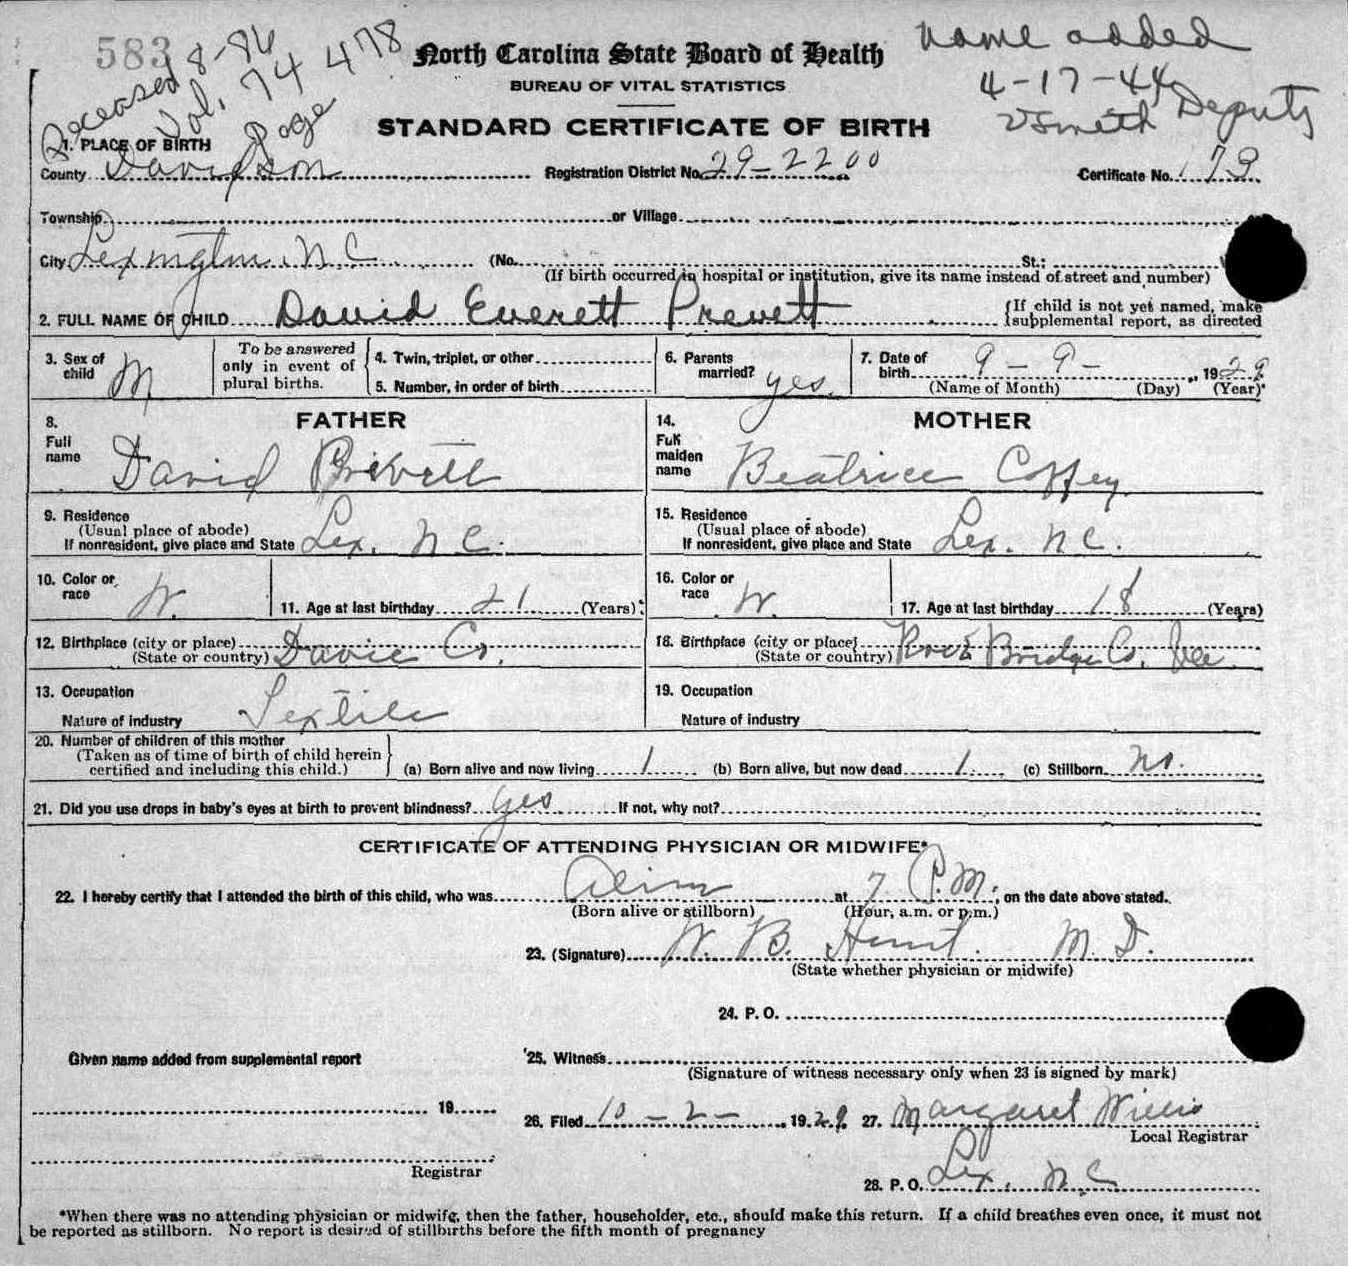 583
Deceased 8-84
Vol. 74 478
Page
North Carolina State Board of Health
BUREAU OF VITAL STATISTICS
STANDARD CERTIFICATE OF BIRTH
Name added
4-17-44
Deputy
1. PLACE OF BIRTH
County Davidson Registration District No. 29-2200 Certificate No. 173
Township or Village
City Lexington, N.C. (No. St.;
(If birth occurred in hospital or institution, give its name instead of street and number)
2. FULL NAME OF CHILD David Everett Prevett {If child is not yet named, make supplemental report, as directed
3. Sex of child M To be answered only in event of plural births. {4. Twin, triplet, or other 5. Number, in order of birth 6. Parents married? yes. 7. Date of birth 9 - 9 - , 1929
(Name of Month) (Day) (Year)
FATHER
8. Full name David Privett
9. Residence
(Usual place of abode)
If nonresident, give place and State Lex. N C.
10. Color or race W. 11. Age at last birthday 21 (Years)
12. Birthplace (city or place)
(State or country) Davie Co.
13. Occupation
Nature of industry Textile
MOTHER
14. Full maiden name Beatrice Coffey
15. Residence
(Usual place of abode)
If nonresident, give place and State Lex. N C.
16. Color or race W. 17. Age at last birthday 18 (Years)
18. Birthplace (city or place)
(State or country) Rock Bridge Co.
19. Occupation
Nature of industry
20. Number of children of this mother
(Taken as of time of birth of child herein
certified and including this child.) } (a) Born alive and now living 1 (b) Born alive, but now dead 1 (c) Stillborn No.
21. Did you use drops in baby's eyes at birth to prevent blindness? yes If not, why not?
CERTIFICATE OF ATTENDING PHYSICIAN OR MIDWIFE*
22. I hereby certify that I attended the birth of this child, who was Alive at 7 P.M., on the date above stated.
(Born alive or stillborn) (Hour, a.m. or p.m.)
23. (Signature) W. B. Hunt. M. D.
(State whether physician or midwife)
24. P. O.
Given name added from supplemental report
25. Witness
(Signature of witness necessary only when 23 is signed by mark)
19
26. Filed 10 - 2 - , 1929. 27. Margaret Willis
Local Registrar
Registrar
28. P. O. Lex. N.C
*When there was no attending physician or midwife, then the father, householder, etc., should make this return. If a child breathes even once, it must not
be reported as stillborn. No report is desired of stillbirths before the fifth month of pregnancy